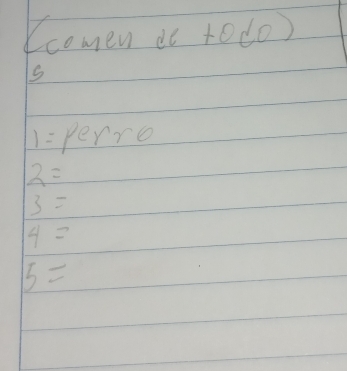 (comen de todo)
5
1=perro
2=
3=
4=
5=